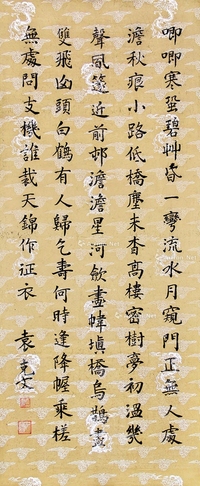 唧唧寒蛩碧艸昏一彎流水月窺門正無人處
澹秋痕小路低橋塵未杳高樓密樹夢初溫幾
聲風篴近前邨澹澹星河飲畫幃塡橋烏鵲
雙飛凶頭白鶴有人歸乞壽何時逢降幄乘槎
無處問支機誰裁天錦作征衣
袁克文